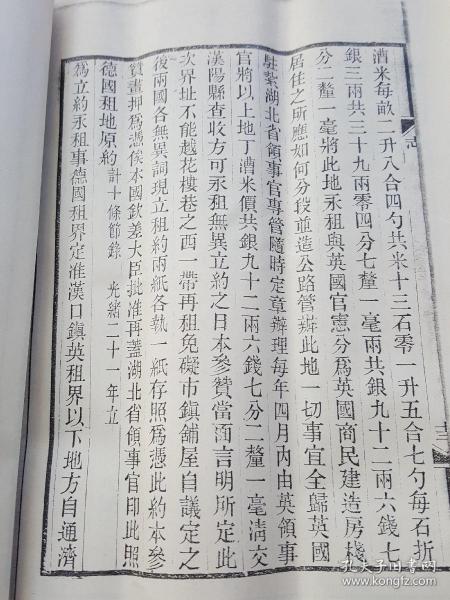 漕米每畝二升八合四勺共米十三石零一升五合七勺每石折
銀三兩共三十九兩零四分七釐一毫兩共銀九十二兩六錢七
分二釐一毫將此地永租與英國官憲分爲英國商民建造房棧
居住之所應如何分段並造公路管辦此地一切事宜全歸英國
駐紮湖北省領事官專管隨時定章辦理每年四月內由英領事
官將以上地丁漕米價共銀九十二兩六錢七分二釐一毫淸交
漢陽縣查收方可永租無異立約之日本參贊當面言明所定此
次界址不能越花樓巷之西一帶再租免礙市鎭舖屋自議定之
後兩國各無異詞現立租約兩紙各執一紙存照爲憑此約本參
贊畫押爲憑俟本國欽差大臣批准再蓋湖北省領事官印此照
德國租地原約 計十條節錄 光緒二十一年立
爲立約永租事德國租界定准漢口鎭英租界以下地方自通濟
志
十三
孔夫子旧书网
www.kongfz.com